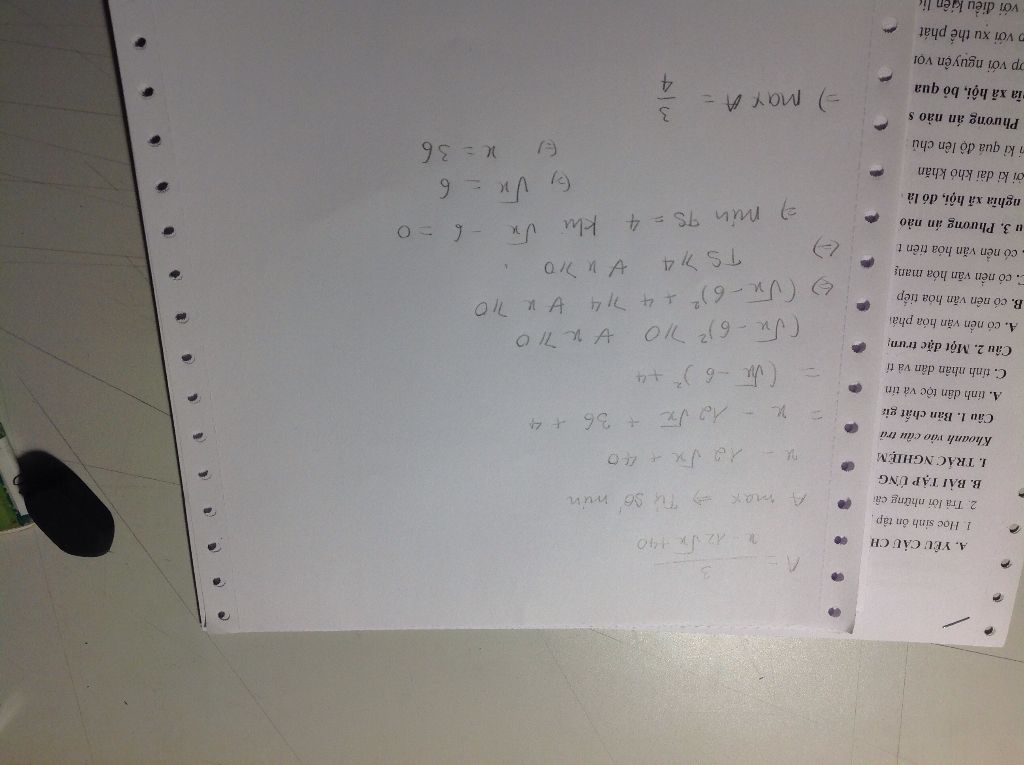 A = 3 / (x - 12√x + 40)
A max => Tử số min
x - 12√x + 40
= x - 12√x + 36 + 4
= (√x - 6)² + 4
(√x - 6)² ≥ 0 ∀ x ≥ 0
<=> (√x - 6)² + 4 ≥ 4 ∀ x ≥ 0
<=> TS ≥ 4 ∀ x ≥ 0.
=> min TS = 4 khi √x - 6 = 0
<=> √x = 6
<=> x = 36
=> max A = 3/4
A. YÊU CẦU CH
1. Học sinh ôn tập
2. Trả lời những câ
B. BÀI TẬP ỨNG
I. TRẮC NGHIỆM
Khoanh vào câu trả
Câu 1. Bản chất gi
A. tính dân tộc và tín
C. tính nhân dân và tí
Câu 2. Một đặc trưn
A. có nền văn hóa phá
B. có nền văn hóa tiếp
C. có nền văn hóa mang
. có nền văn hóa tiên t
u 3. Phương án nào
nghĩa xã hội, đó là
ời kì dai khó khăn
i kì quá độ lên chủ
Phương án nào s
ĩa xã hội, bỏ qua
ợp với nguyện vọn
p với xu thế phát
với điều kiện lị